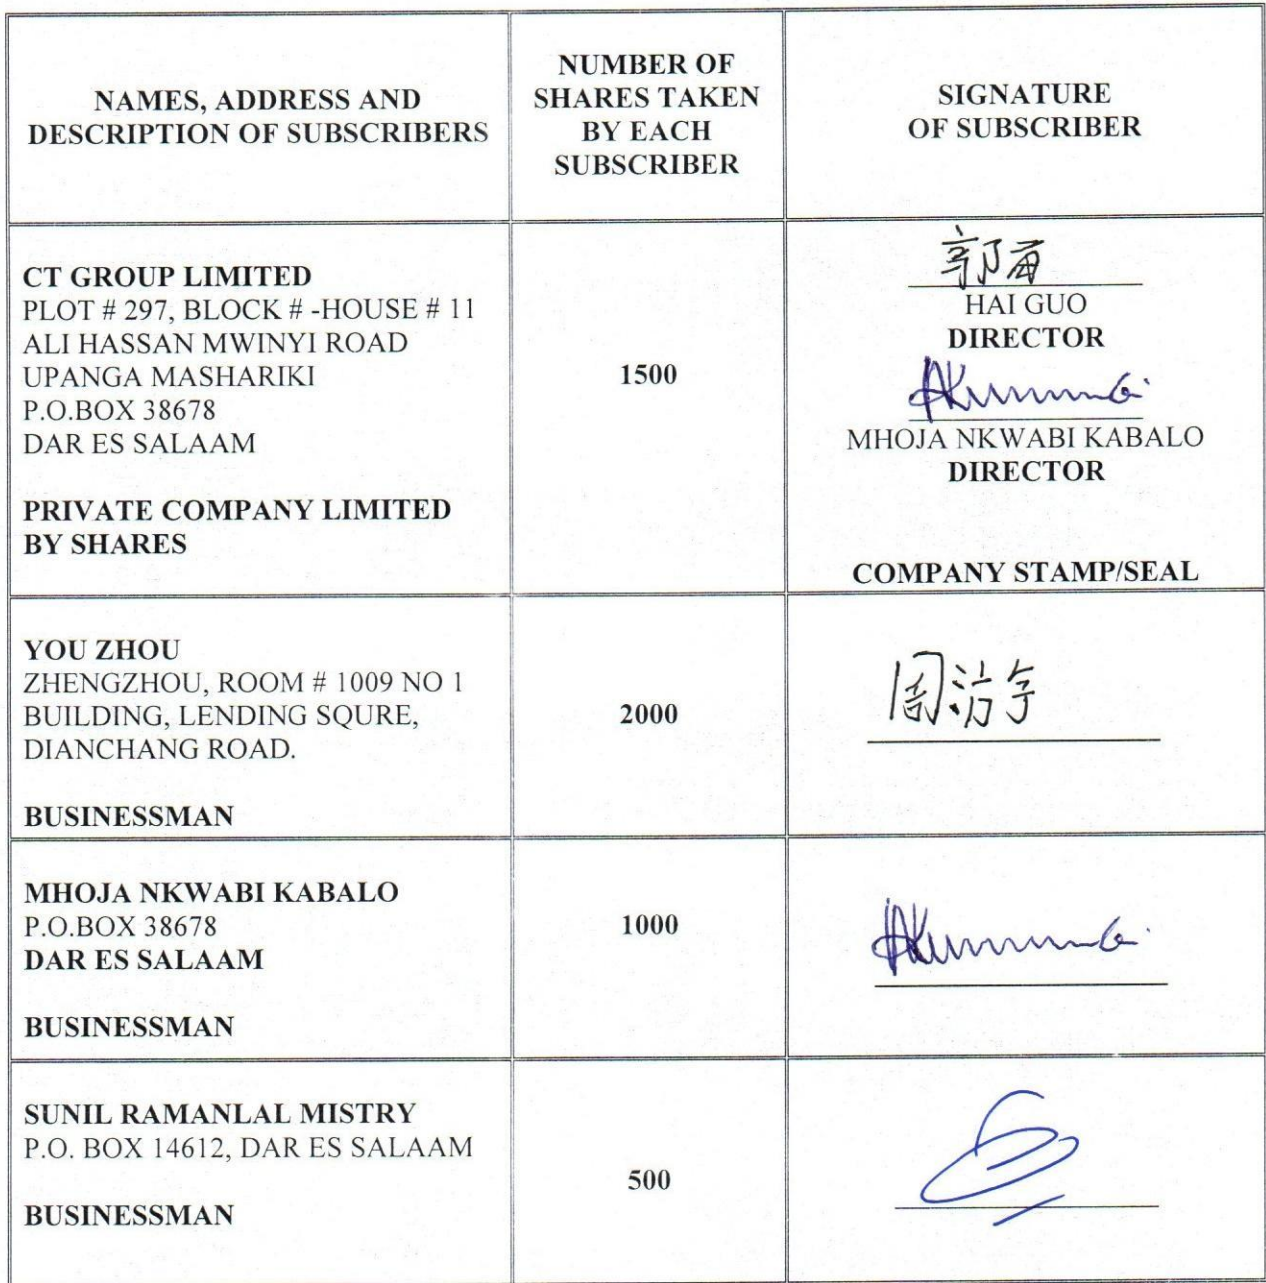 NAMES, ADDRESS AND
DESCRIPTION OF SUBSCRIBERS
NUMBER OF
SHARES TAKEN
BY EACH
SUBSCRIBER
SIGNATURE
OF SUBSCRIBER
CT GROUP LIMITED
PLOT # 297, BLOCK # -HOUSE # 11
ALI HASSAN MWINYI ROAD
UPANGA MASHARIKI
P.O.BOX 38678
DAR ES SALAAM
PRIVATE COMPANY LIMITED
BY SHARES
1500
HAI GUO
DIRECTOR
MHOJA NKWABI KABALO
DIRECTOR
COMPANY STAMP/SEAL
YOU ZHOU
ZHENGZHOU, ROOM # 1009 NO 1
BUILDING, LENDING SQURE,
DIANCHANG ROAD.
BUSINESSMAN
2000
MHOJA NKWABI KABALO
P.O.BOX 38678
DAR ES SALAAM
BUSINESSMAN
1000
SUNIL RAMANLAL MISTRY
P.O. BOX 14612, DAR ES SALAAM
BUSINESSMAN
500